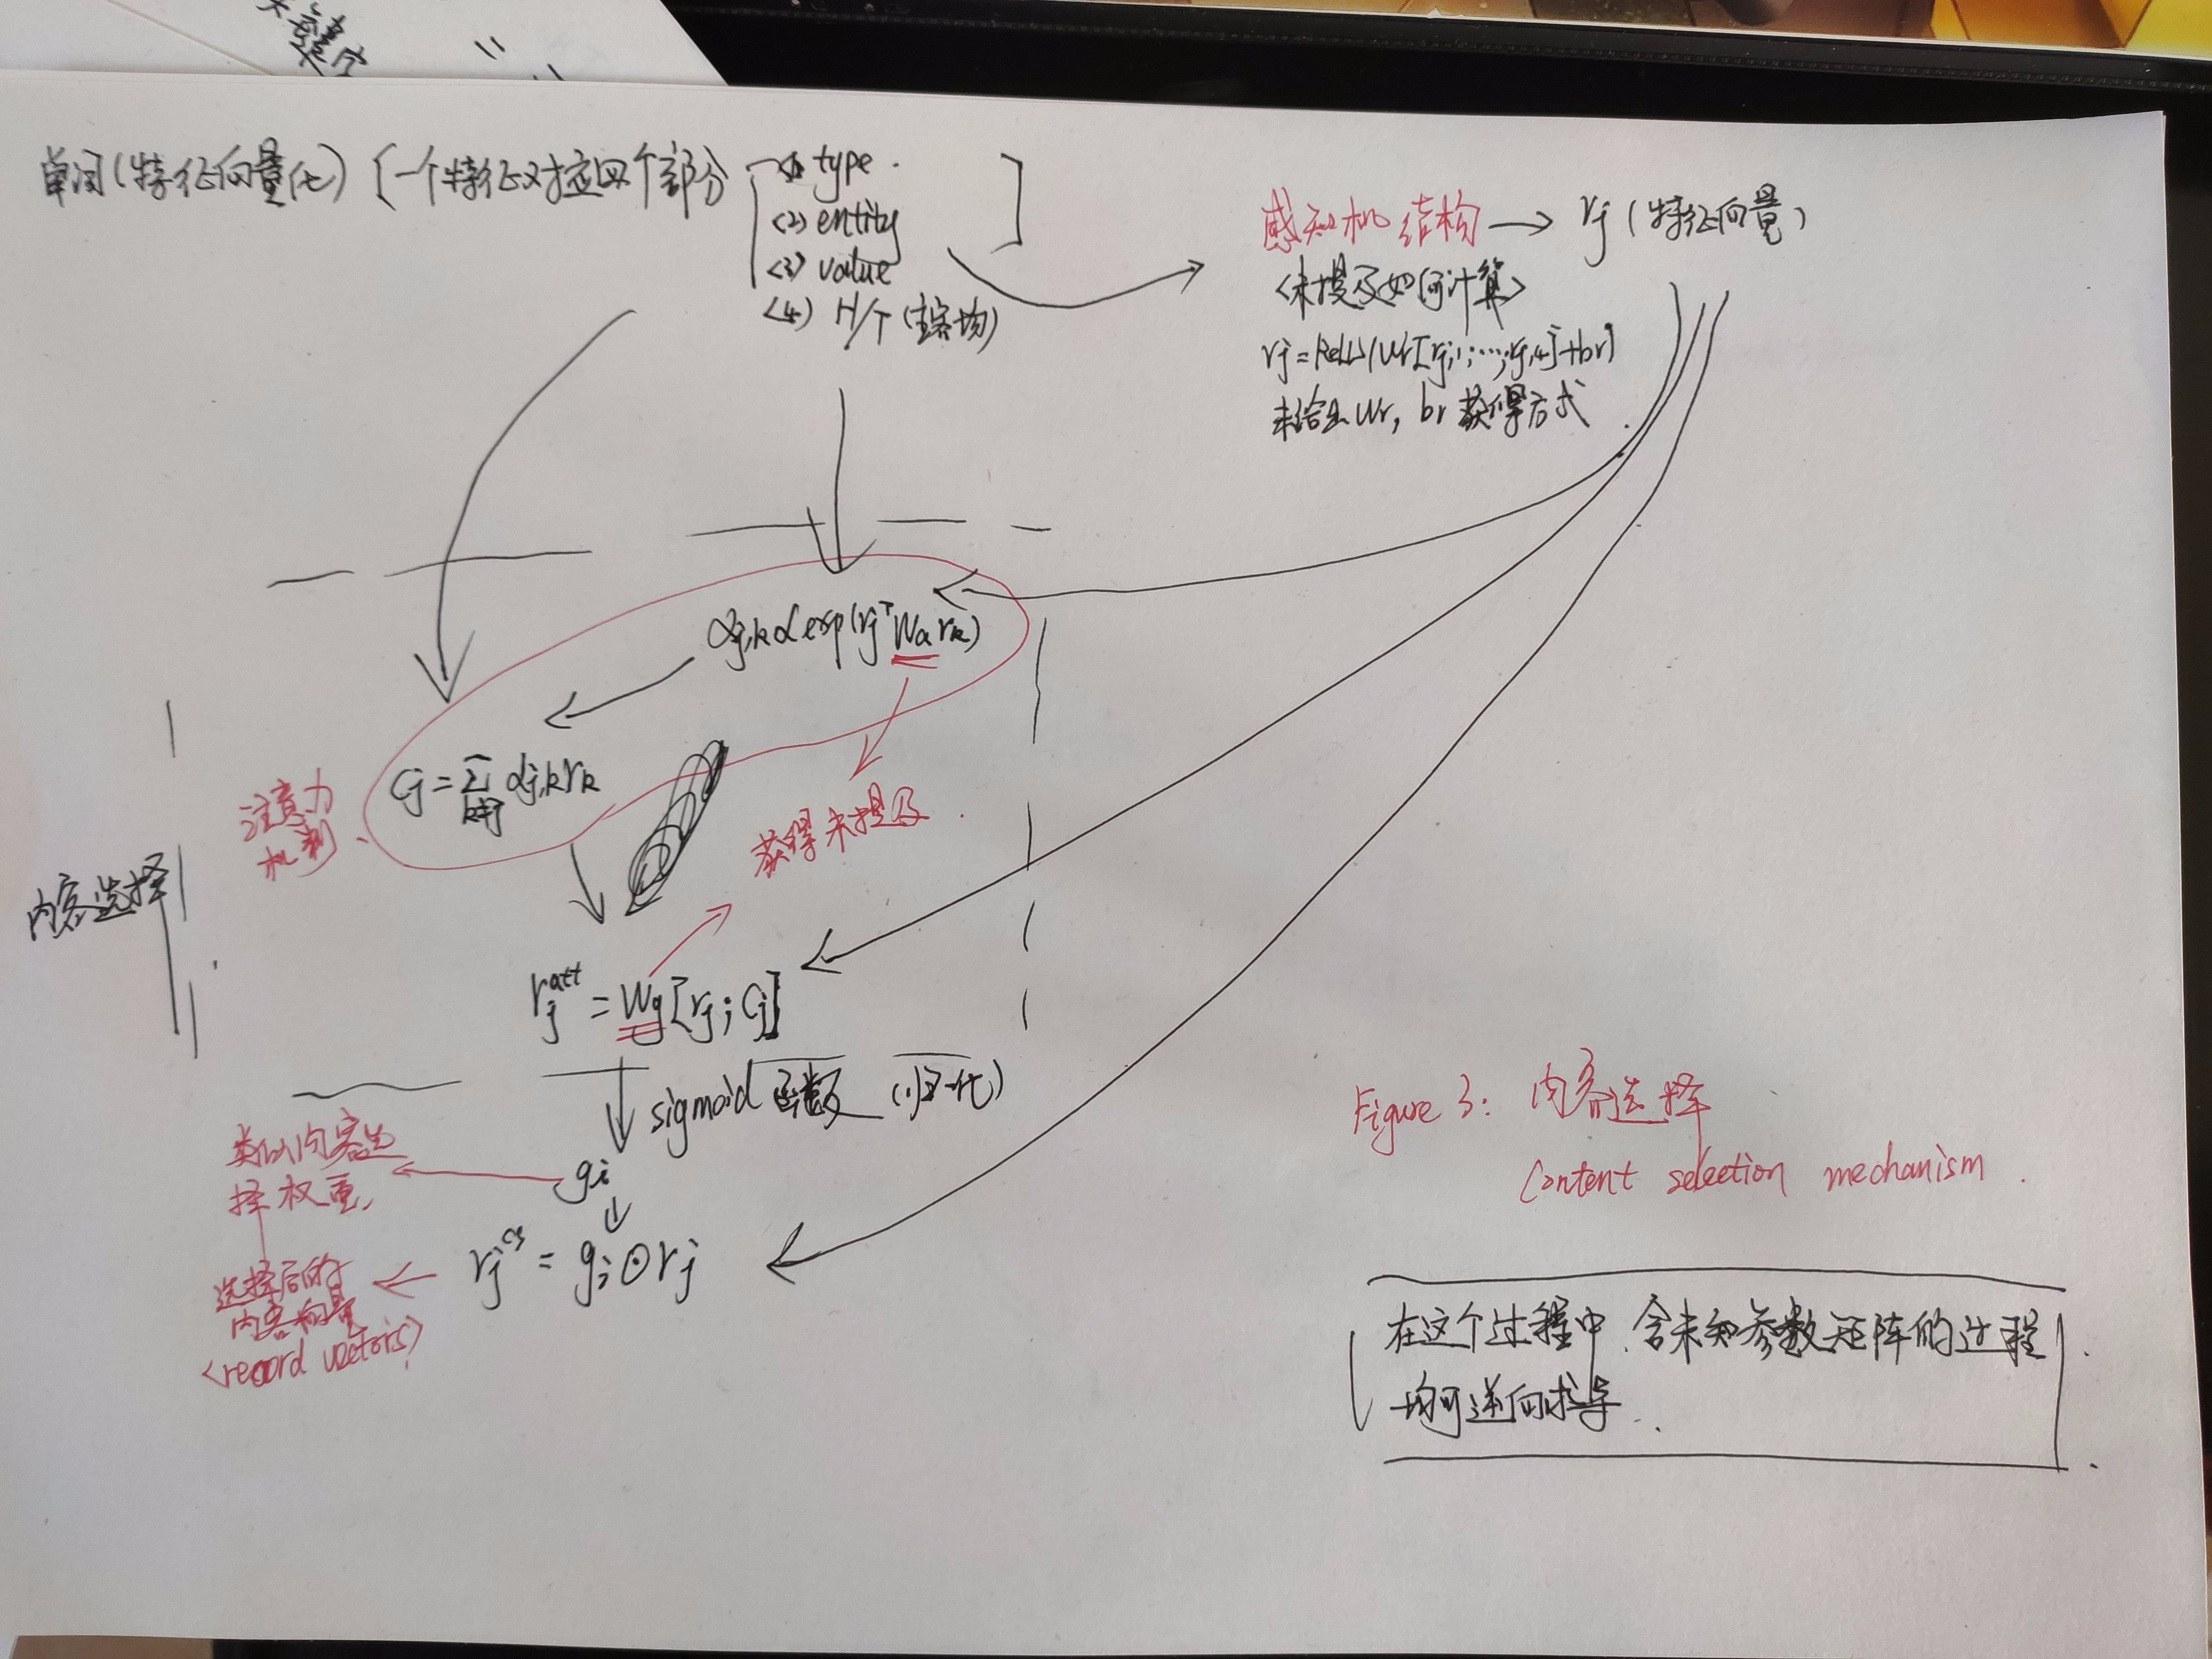 单词(特征向量化) {一个特征对应四个部分
<1> type.
<2> entity
<3> value
<4> H/T (主客场)
感知机结构 → rj (特征向量)
<未提及如何计算>
rj = ReLU(Wr[rj,1;…;rj,4]+br)
未给出Wr, br获得方式.
αj,k∝exp(rjᵀWark)
Cj = Σk≠j αj,krk
注意力
机制
获得未提及.
内容选择
rjᵃᵗᵗ = Wg[rj;Cj]
sigmoid函数 (归一化)
gi
类似内容选
择权重,
rjᶜˢ = gi⊙rj
选择后的
内容向量
<record vectors>
Figure 3: 内容选择
Content selection mechanism.
在这个过程中.含未知参数矩阵的过程
均可逆向求导.